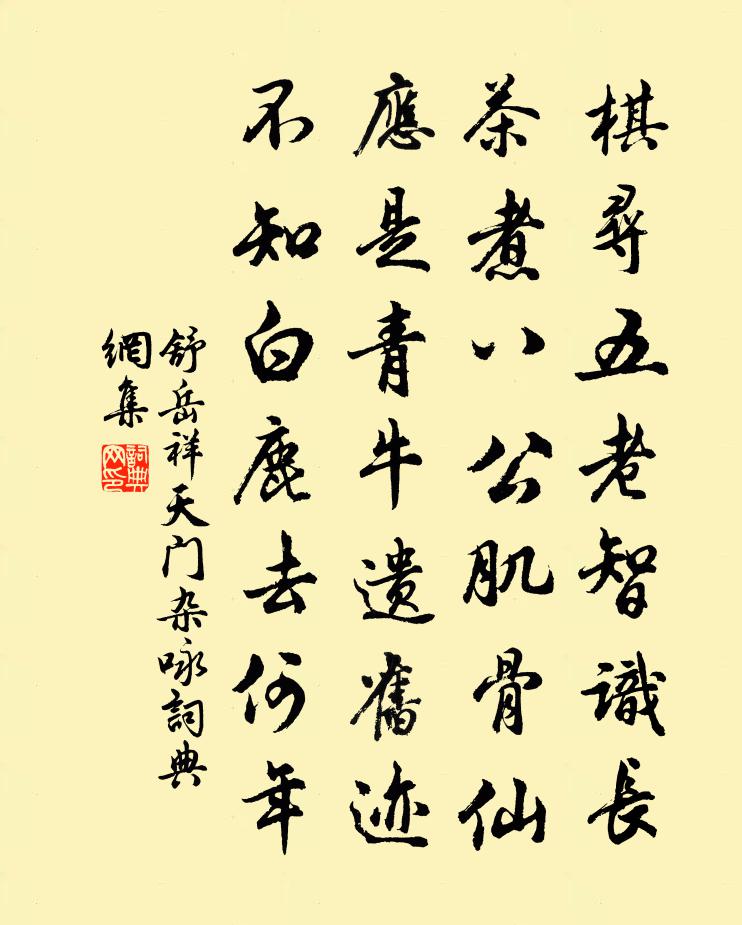 棋尋五老智識長
茶煮八公肌骨仙
應是青牛遺舊迹
不知白鹿去何年
舒岳祥天门杂咏詞典
網集
詞典
网印